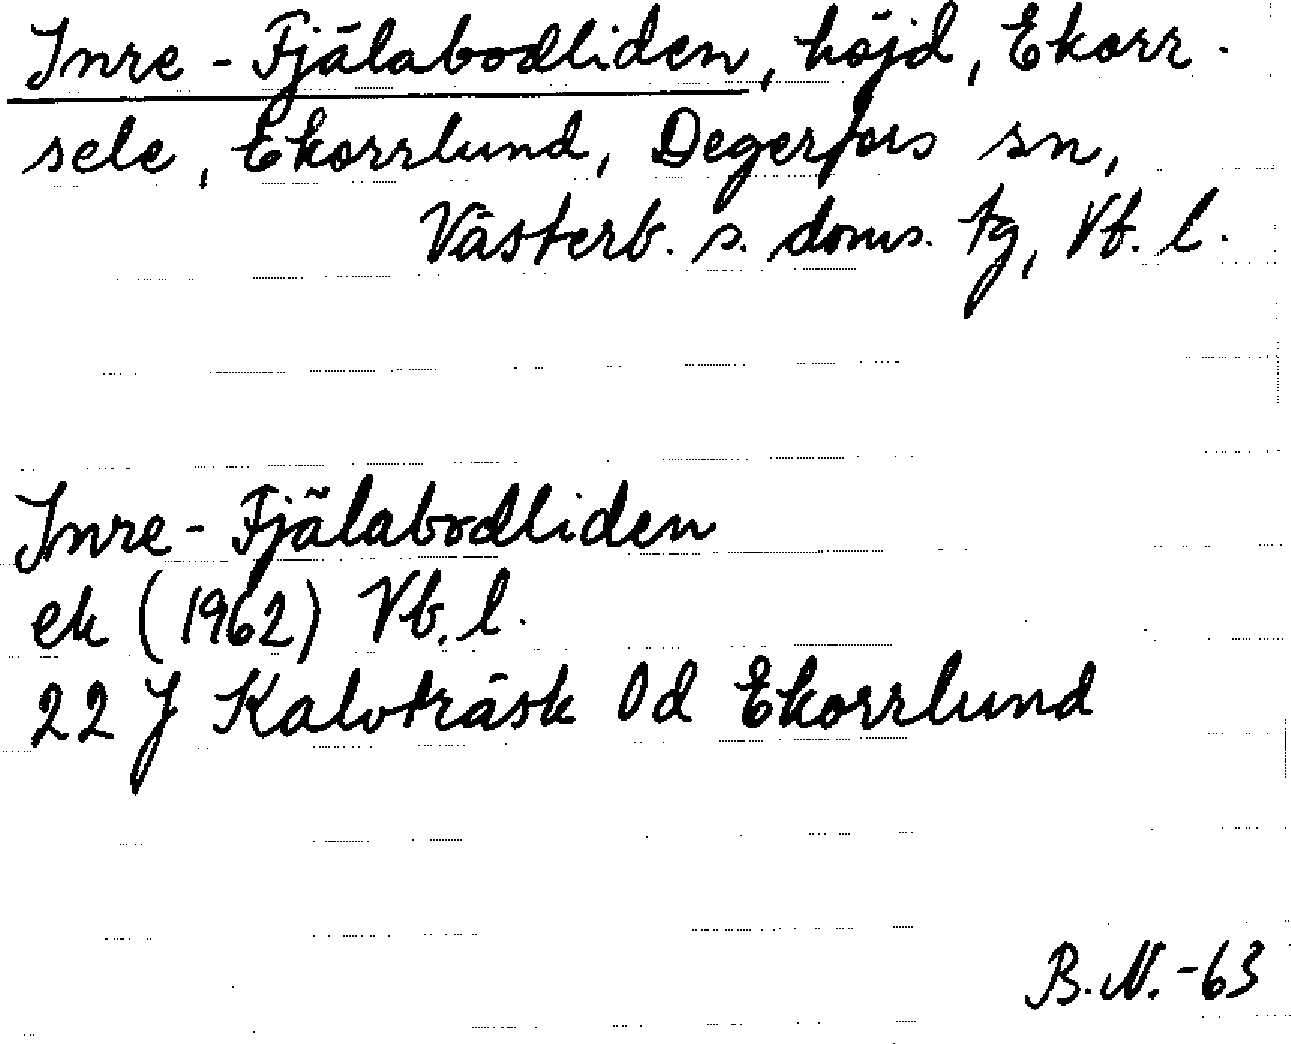 Inre-Fjälabodliden, höjd, Ekorr-
sele, Ekorrlund, Degerfors sn,
Västerb. s. doms. tg, Vb. l.
Inre-Fjälabodliden
ek (1962) Vb. l.
22 J Kalvträsk 0d Ekorrlund
B.N.-63